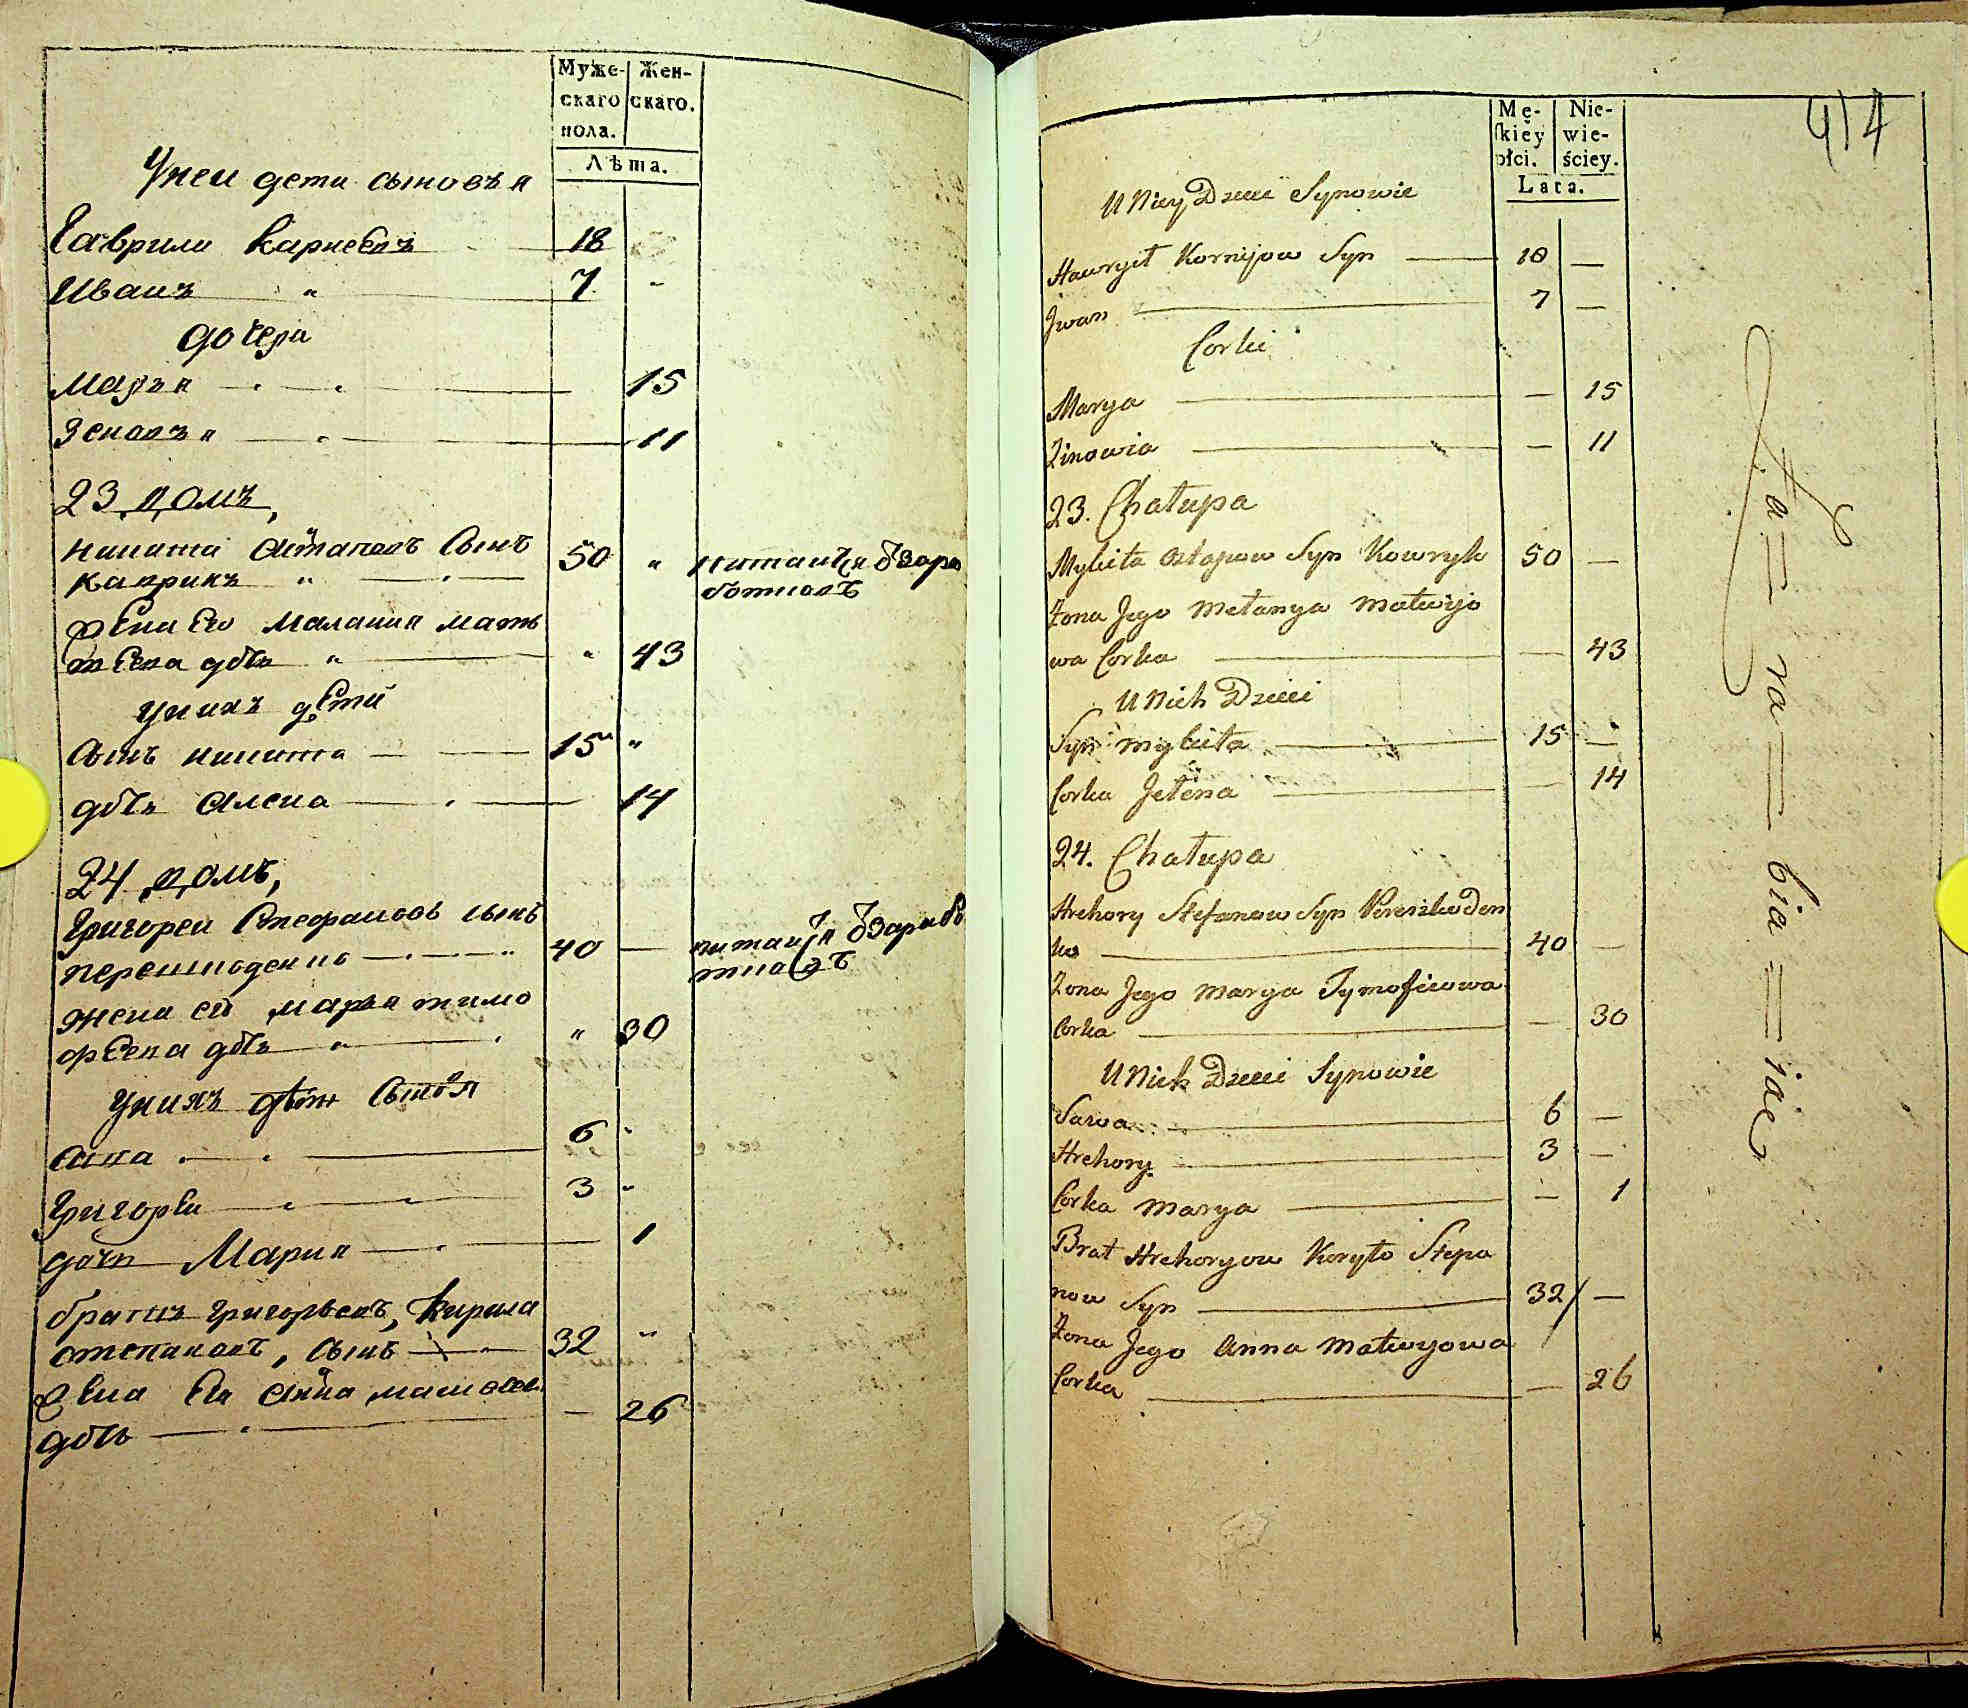 Муже-
скаго
пола.
Жен-
скаго.
Лѣта.
Унеи дети сыновья
Гаврила Карнеевъ 18
Иванъ " 7 -
дочери
Марья 15
Зеновья 11
23 домъ,
Никита Астаповъ сынъ
Каврикъ " 50 " питаится
Жена Его Малания мать
вѣева дочь " " 43
Унихъ дети
Сынъ Никита 15 "
дочь Алена 14
24 домъ,
Григореи Стефановъ сынъ
40 — питаится
Жена ево Марья тимо
феева дочь " " 30
Унихъ дети
Сава 6 -
Григореи 3 -
дочь Мария 1
братъ григорьевъ, Кирила
степановъ, сынъ 32 "
Жена Его Анна
дочь — 26
Mę-
skiey
płci.
Nie-
wie-
ściey.
Lata.
414
U Niey Dzieci Synowie
Hawryił Kornijow Syn 18 —
Jwan 7 —
Corki
Marya — 15
Zinowia — 11
23. Chałupa
Mykita Ostapow Syn Kowryk 50 —
Zona Jego Mełanya Matwijo
wa Corka — 43
U Nich Dzieci
Syn Mykita 15 —
Corka Jełena — 14
24. Chałupa
Hrehory Stefanow Syn Pereszkoden
ko 40 —
Zona Jego Marya Tymofieiowa
Corka — 30
U Nich Dzieci Synowie
Sawa 6 —
Hrehory 3 —
Corka Marya — 1
Brat Hrehoryow Koryło Stepa
now Syn 32 —
Zona Jego Anna Matwyowa
Corka — 26